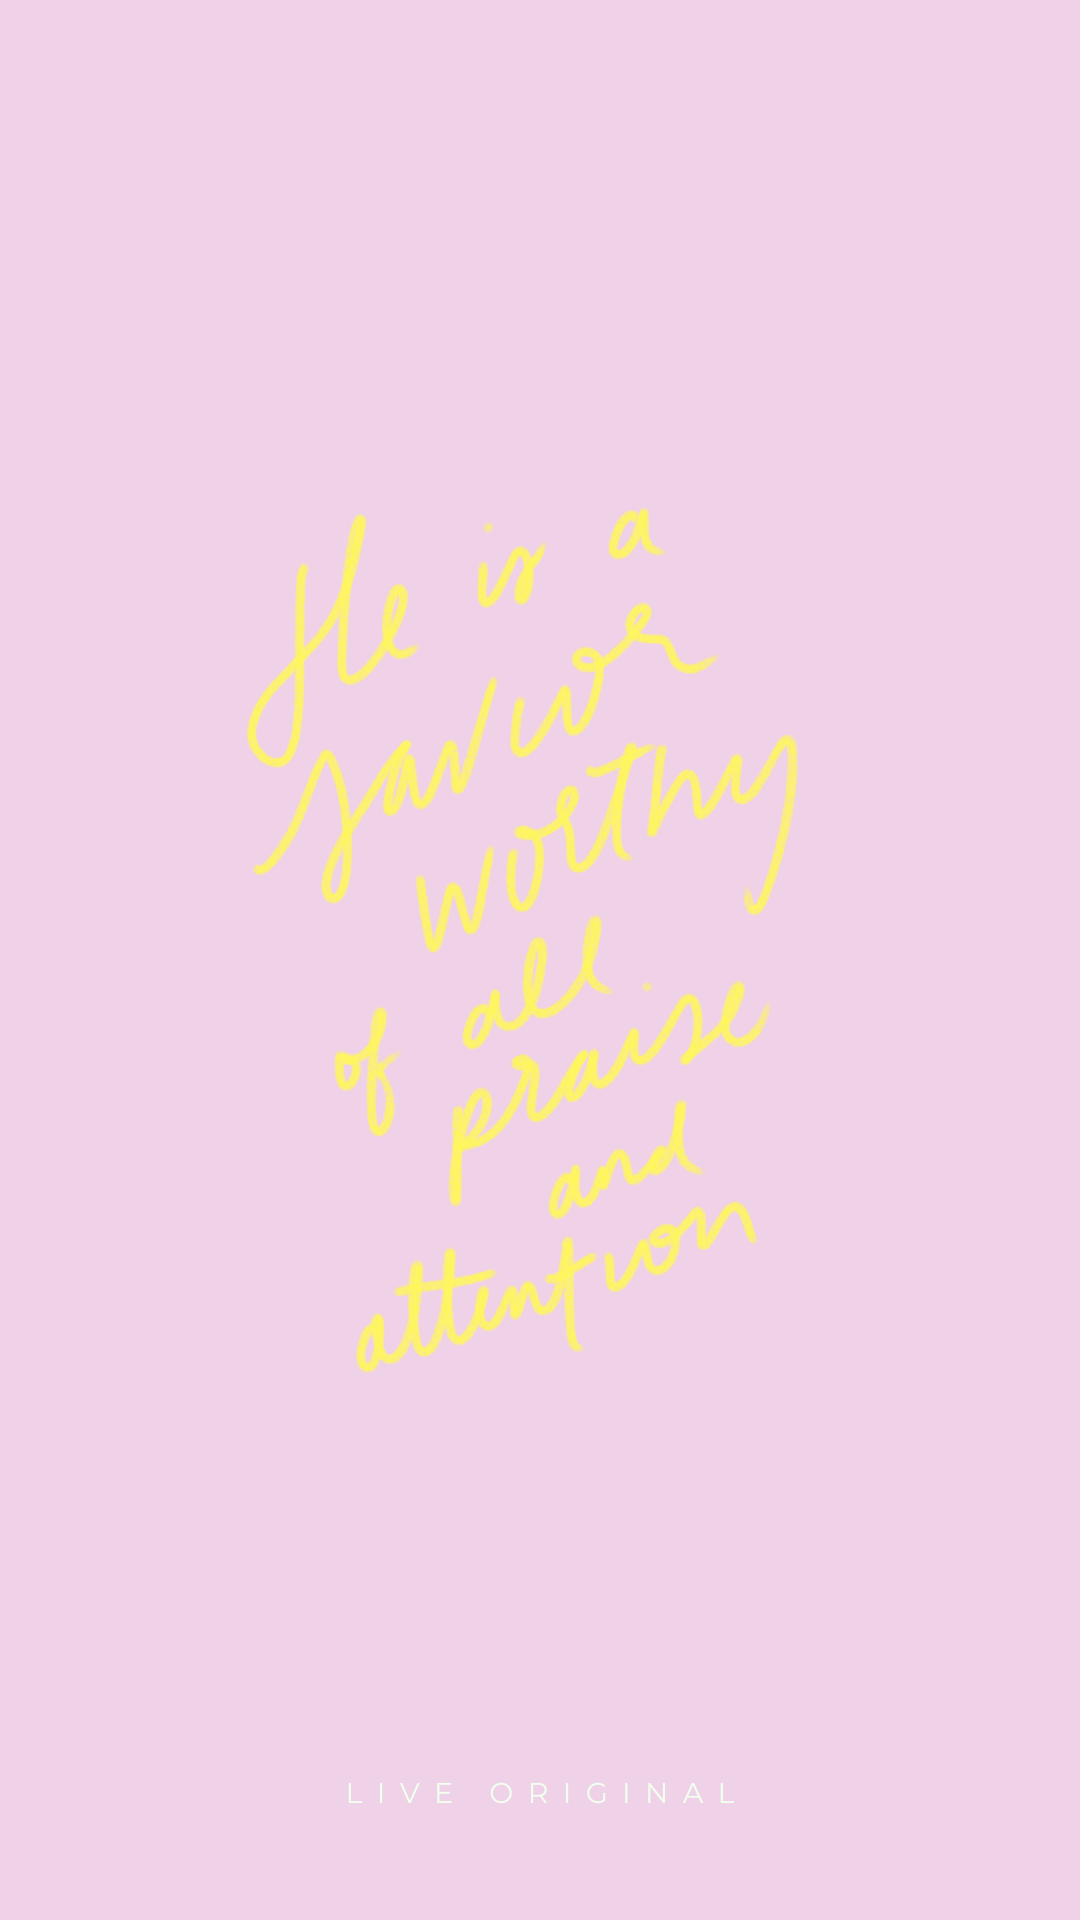 He is a
savior
worthy
of all
praise
and
attention
LIVE ORIGINAL